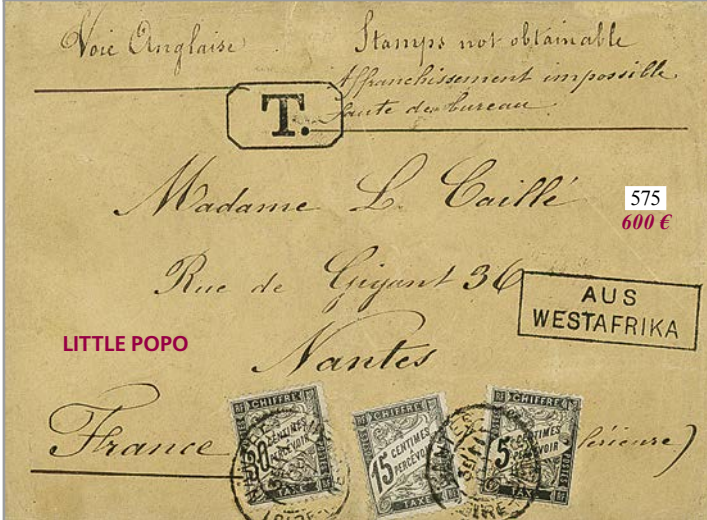 Voie Anglaise
Stamps not obtainable
Affranchissement impossible
faute de bureau
T.
Madame L. Caillé
575
600 €
Rue de Gigant 36
AUS
WESTAFRIKA
LITTLE POPO
Nantes
France
CHIFFRE
30 CENTIMES
PERCEVOIR
TAXE
CHIFFRE
15 CENTIMES
PERCEVOIR
TAXE
CHIFFRE
5 CENTIMES
PERCEVOIR
TAXE
NANTES
LOIRE